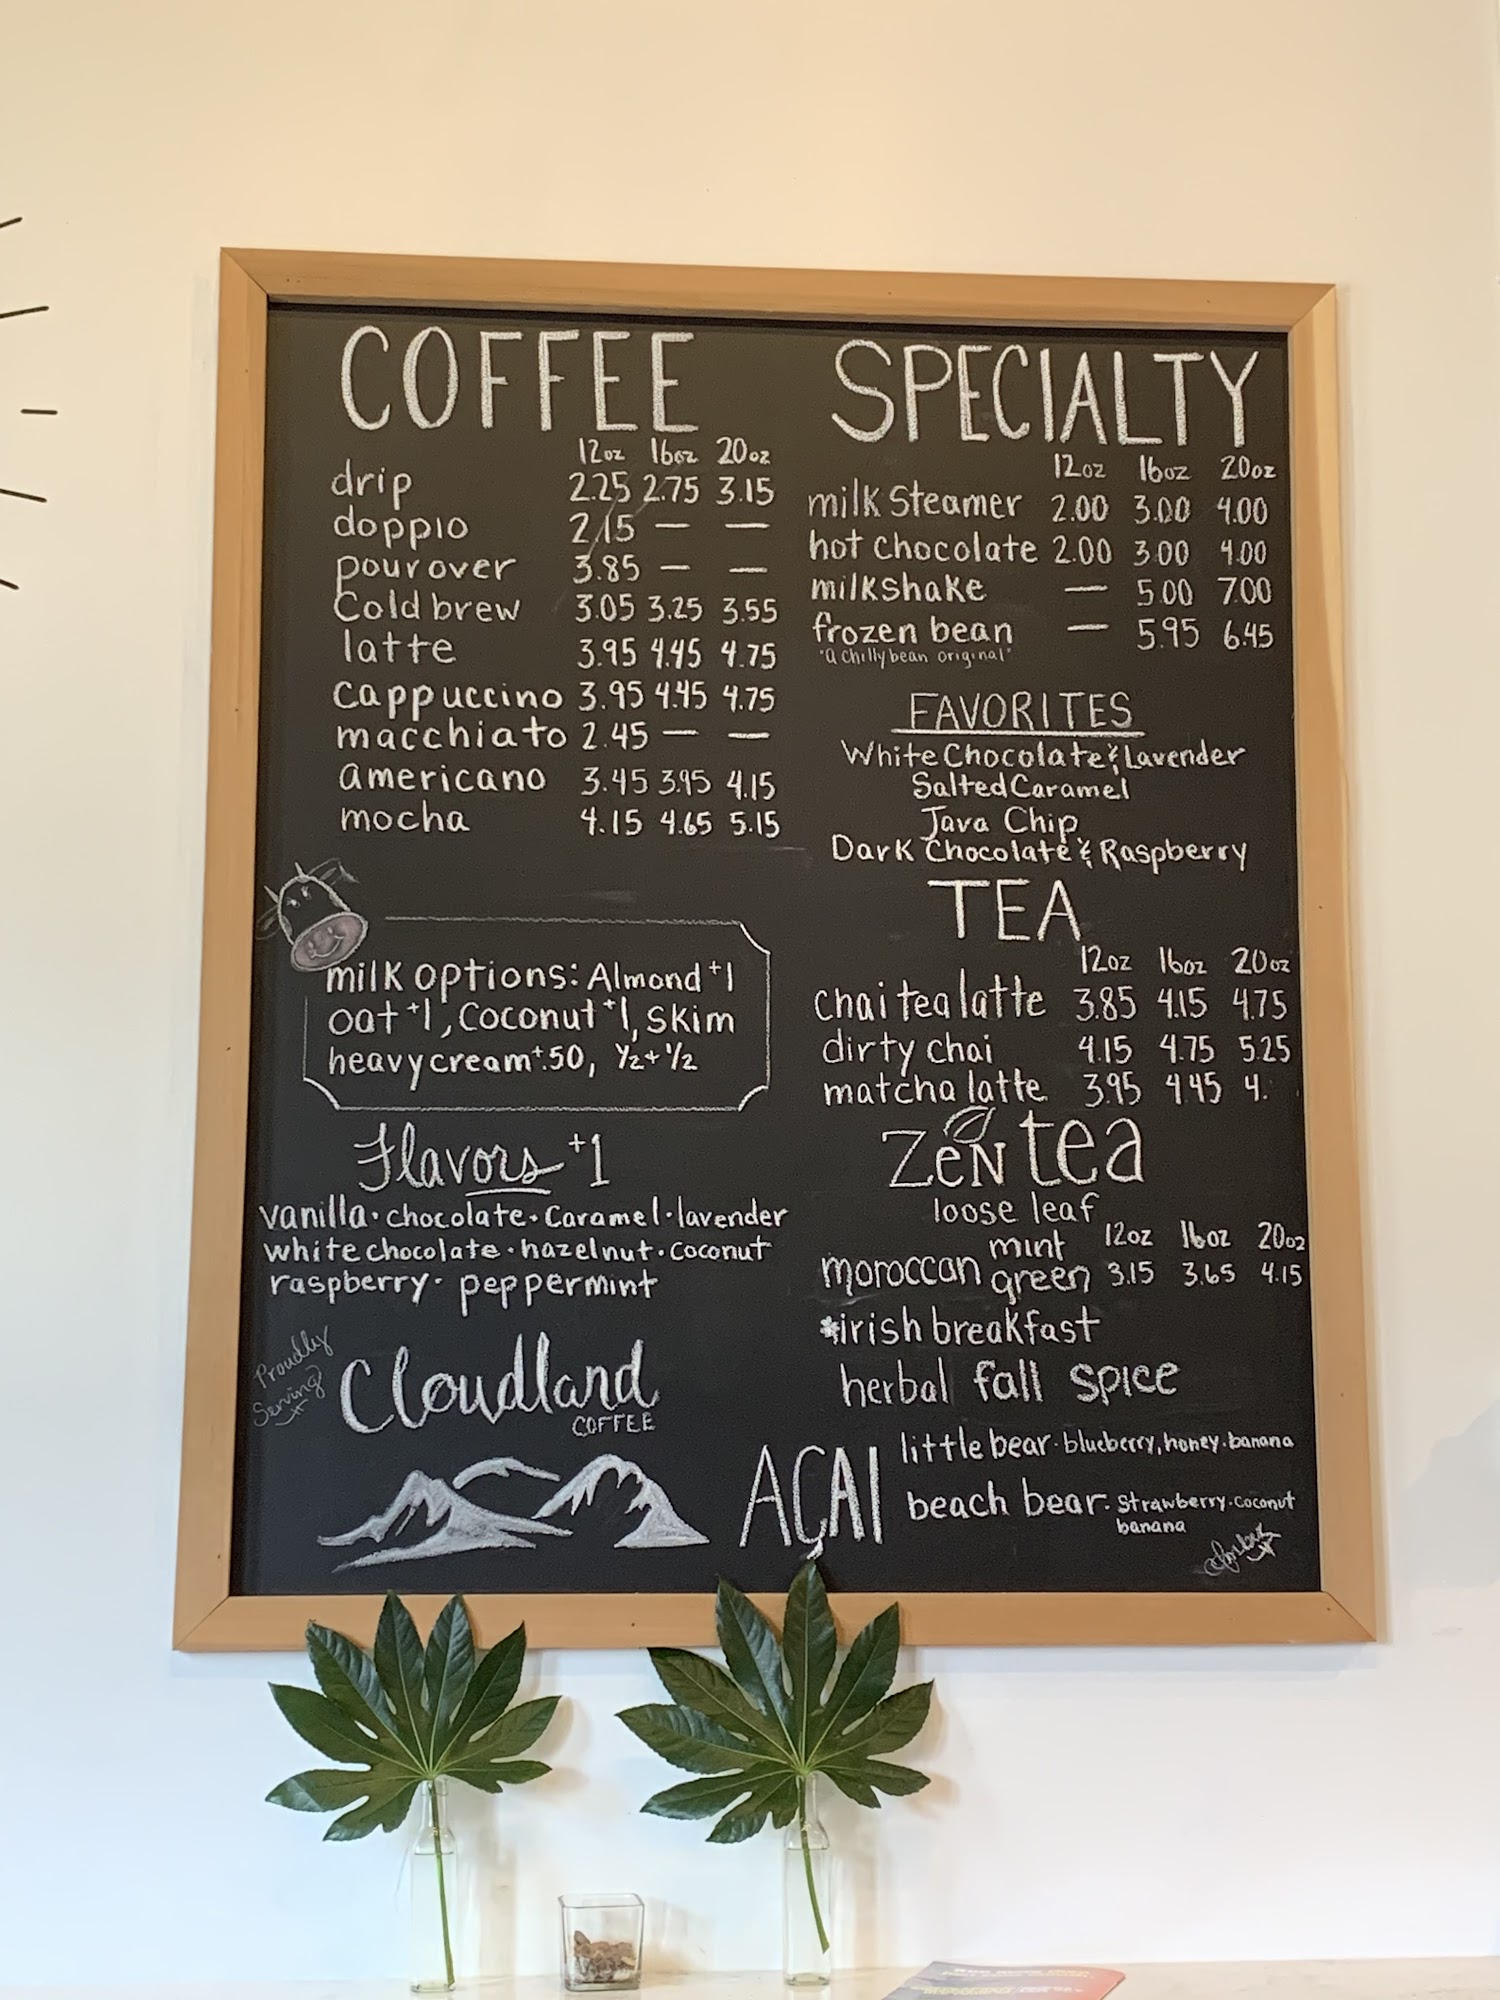 COFFEE
12oz 16oz 20oz
drip 2.25 2.75 3.15
doppio 2.15 — —
pour over 3.85 — —
Cold brew 3.05 3.25 3.55
latte 3.95 4.45 4.75
cappuccino 3.95 4.45 4.75
macchiato 2.45 — —
americano 3.45 3.95 4.15
mocha 4.15 4.65 5.15
milk options: Almond +1
oat +1, Coconut +1, skim
heavy cream +.50, ½ + ½
Flavors +1
vanilla · chocolate · Caramel · lavender
white chocolate · hazelnut · coconut
raspberry · peppermint
Proudly
Serving
Cloudland
COFFEE
SPECIALTY
12oz 16oz 20oz
milk Steamer 2.00 3.00 4.00
hot chocolate 2.00 3.00 4.00
milkshake — 5.00 7.00
frozen bean — 5.95 6.45
"a chillybean original"
FAVORITES
White Chocolate & Lavender
Salted Caramel
Java Chip
Dark Chocolate & Raspberry
TEA
12oz 16oz 20oz
chai tea latte 3.85 4.15 4.75
dirty chai 4.15 4.75 5.25
matcha latte 3.95 4.45 4.
ZEN tea
loose leaf
12oz 16oz 20oz
moroccan mint green 3.15 3.65 4.15
*irish breakfast
herbal fall spice
AÇAI
little bear · blueberry, honey · banana
beach bear · strawberry · coconut
banana